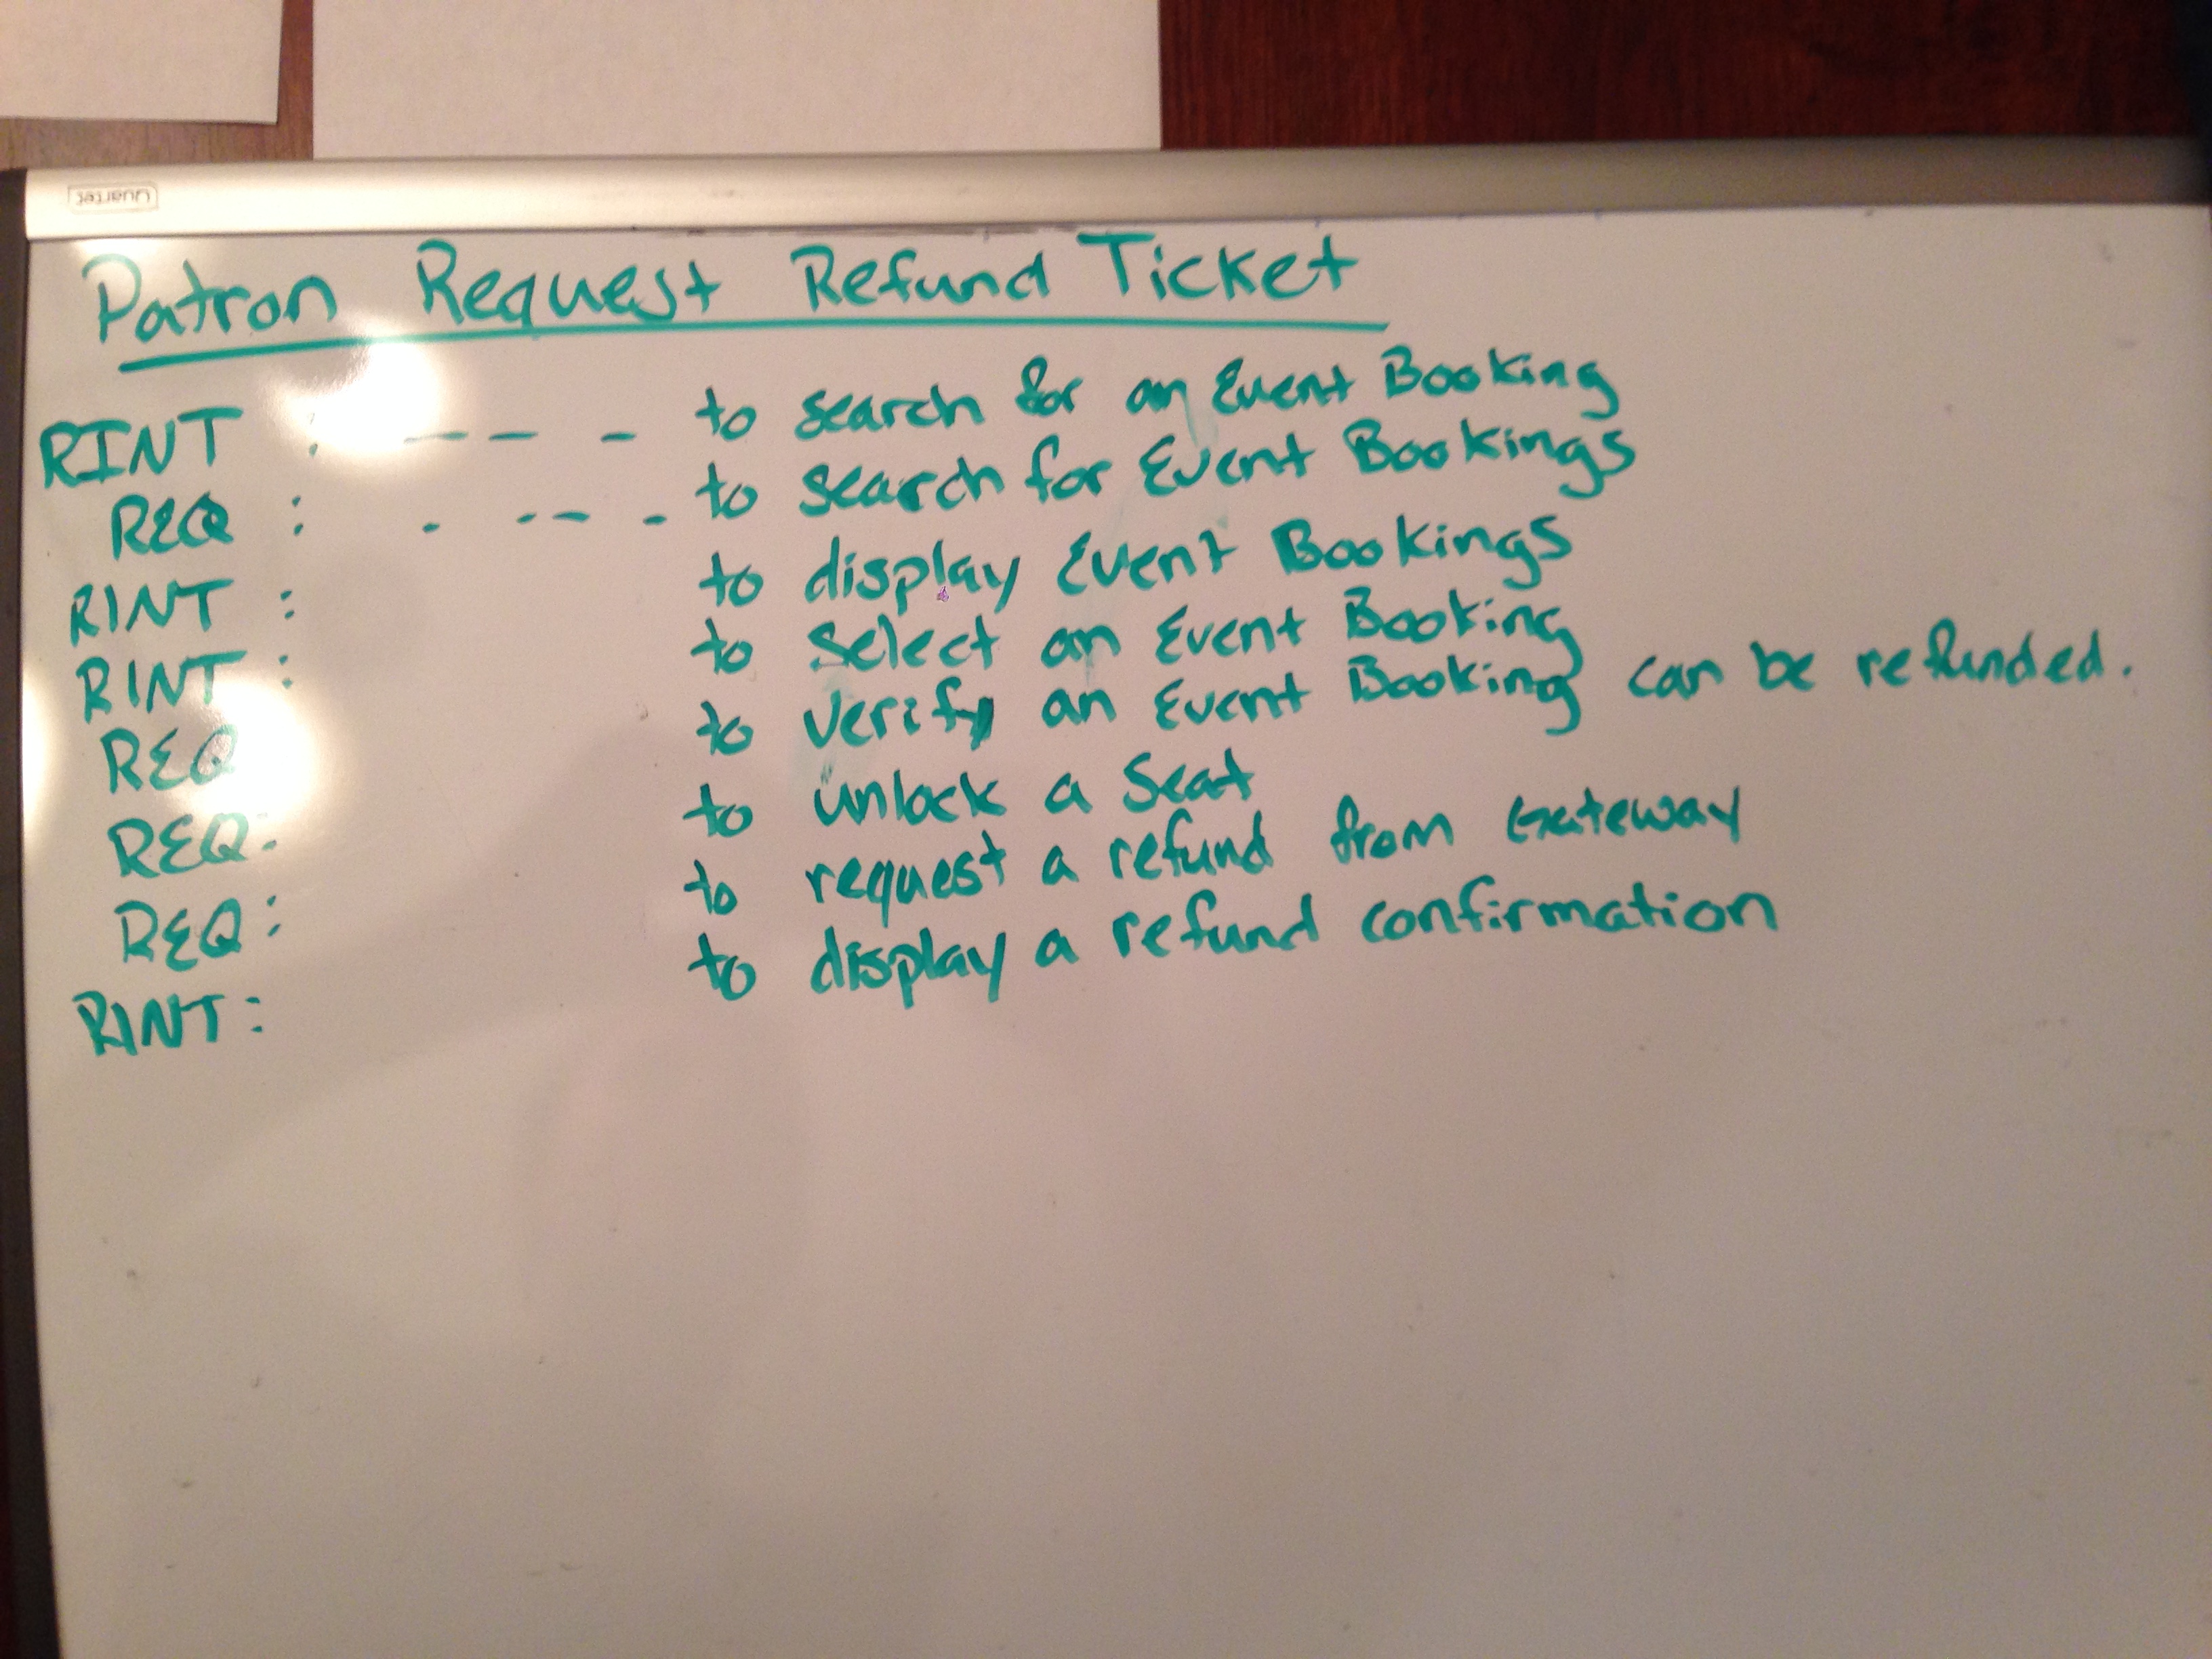 Quartet
Patron Request Refund Ticket
RINT : - - - to search for an Event Booking
REQ : - - - - to search for Event Bookings
RINT : to display Event Bookings
RINT : to select an Event Booking
REQ to verify an Event Booking can be refunded.
REQ: to unlock a Seat
REQ: to request a refund from Gateway
RINT: to display a refund confirmation